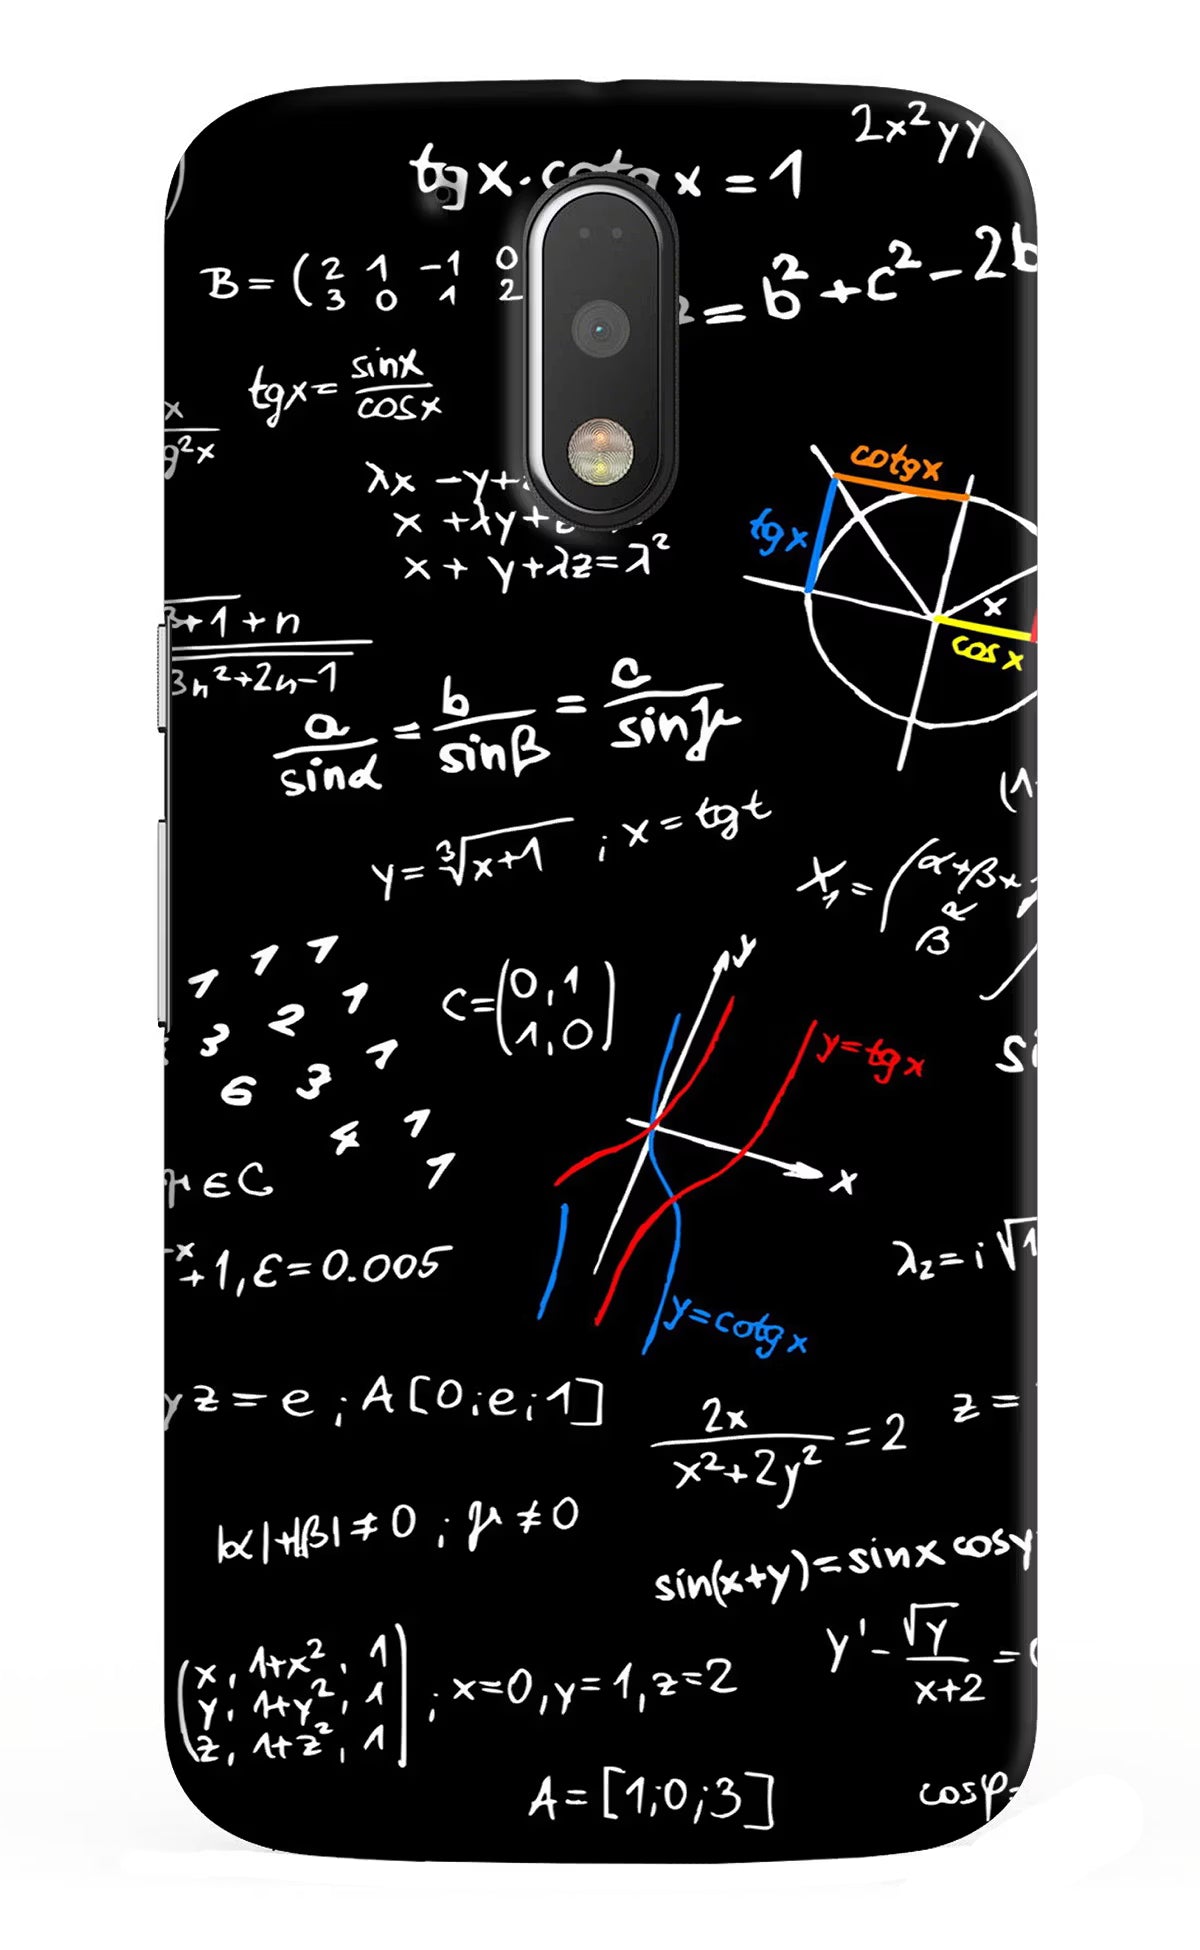 2x²yy
tgx·cotgx = 1
B = (2 1 -1 0
3 0 1 2
² = b² + c² - 2b
tgx = sinx
cosx
x
g²x
cotgx
tgx
x
cosx
λx - y +
x + λy +
x + y + λz = λ²
3+1 + n
3n²+2n-1
a = b = c
sinα sinβ sinμ
y = ∛x+1 ; x = tgt
(1-
X₁ = (α+βx
β
1 1 1
1
3 2
1
6 3
4 1
1
C = (0,1
1,0)
y
y=tgx
x
y=cotgx
si
μ ∈ C
-x
+1, ε = 0.005
λ₂ = i √1
yz = e ; A[0;e;1]
2x = 2
x²+2y²
z =
|α|+|β| ≠ 0 ; μ ≠ 0
sin(x+y) = sinx cosy
y' - √y =
x+2
(x, 1+x², 1
y, 1+y², 1
z, 1+z², 1) ; x=0, y=1, z=2
A = [1;0;3]
cosφ=